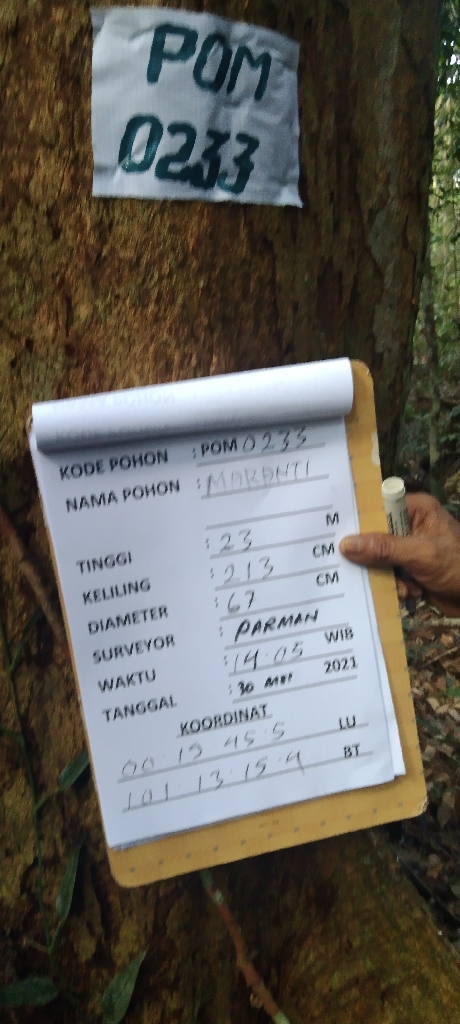 POM
0233
KODE POHON : POM 0233
NAMA POHON : MARANTI
TINGGI : 23 M
KELILING : 213 CM
DIAMETER : 67 CM
SURVEYOR : PARMAN
WAKTU : 14.05 WIB
TANGGAL : 30 MEI 2021
KOORDINAT
00.19.45.5 LU
101.13.15.4 BT